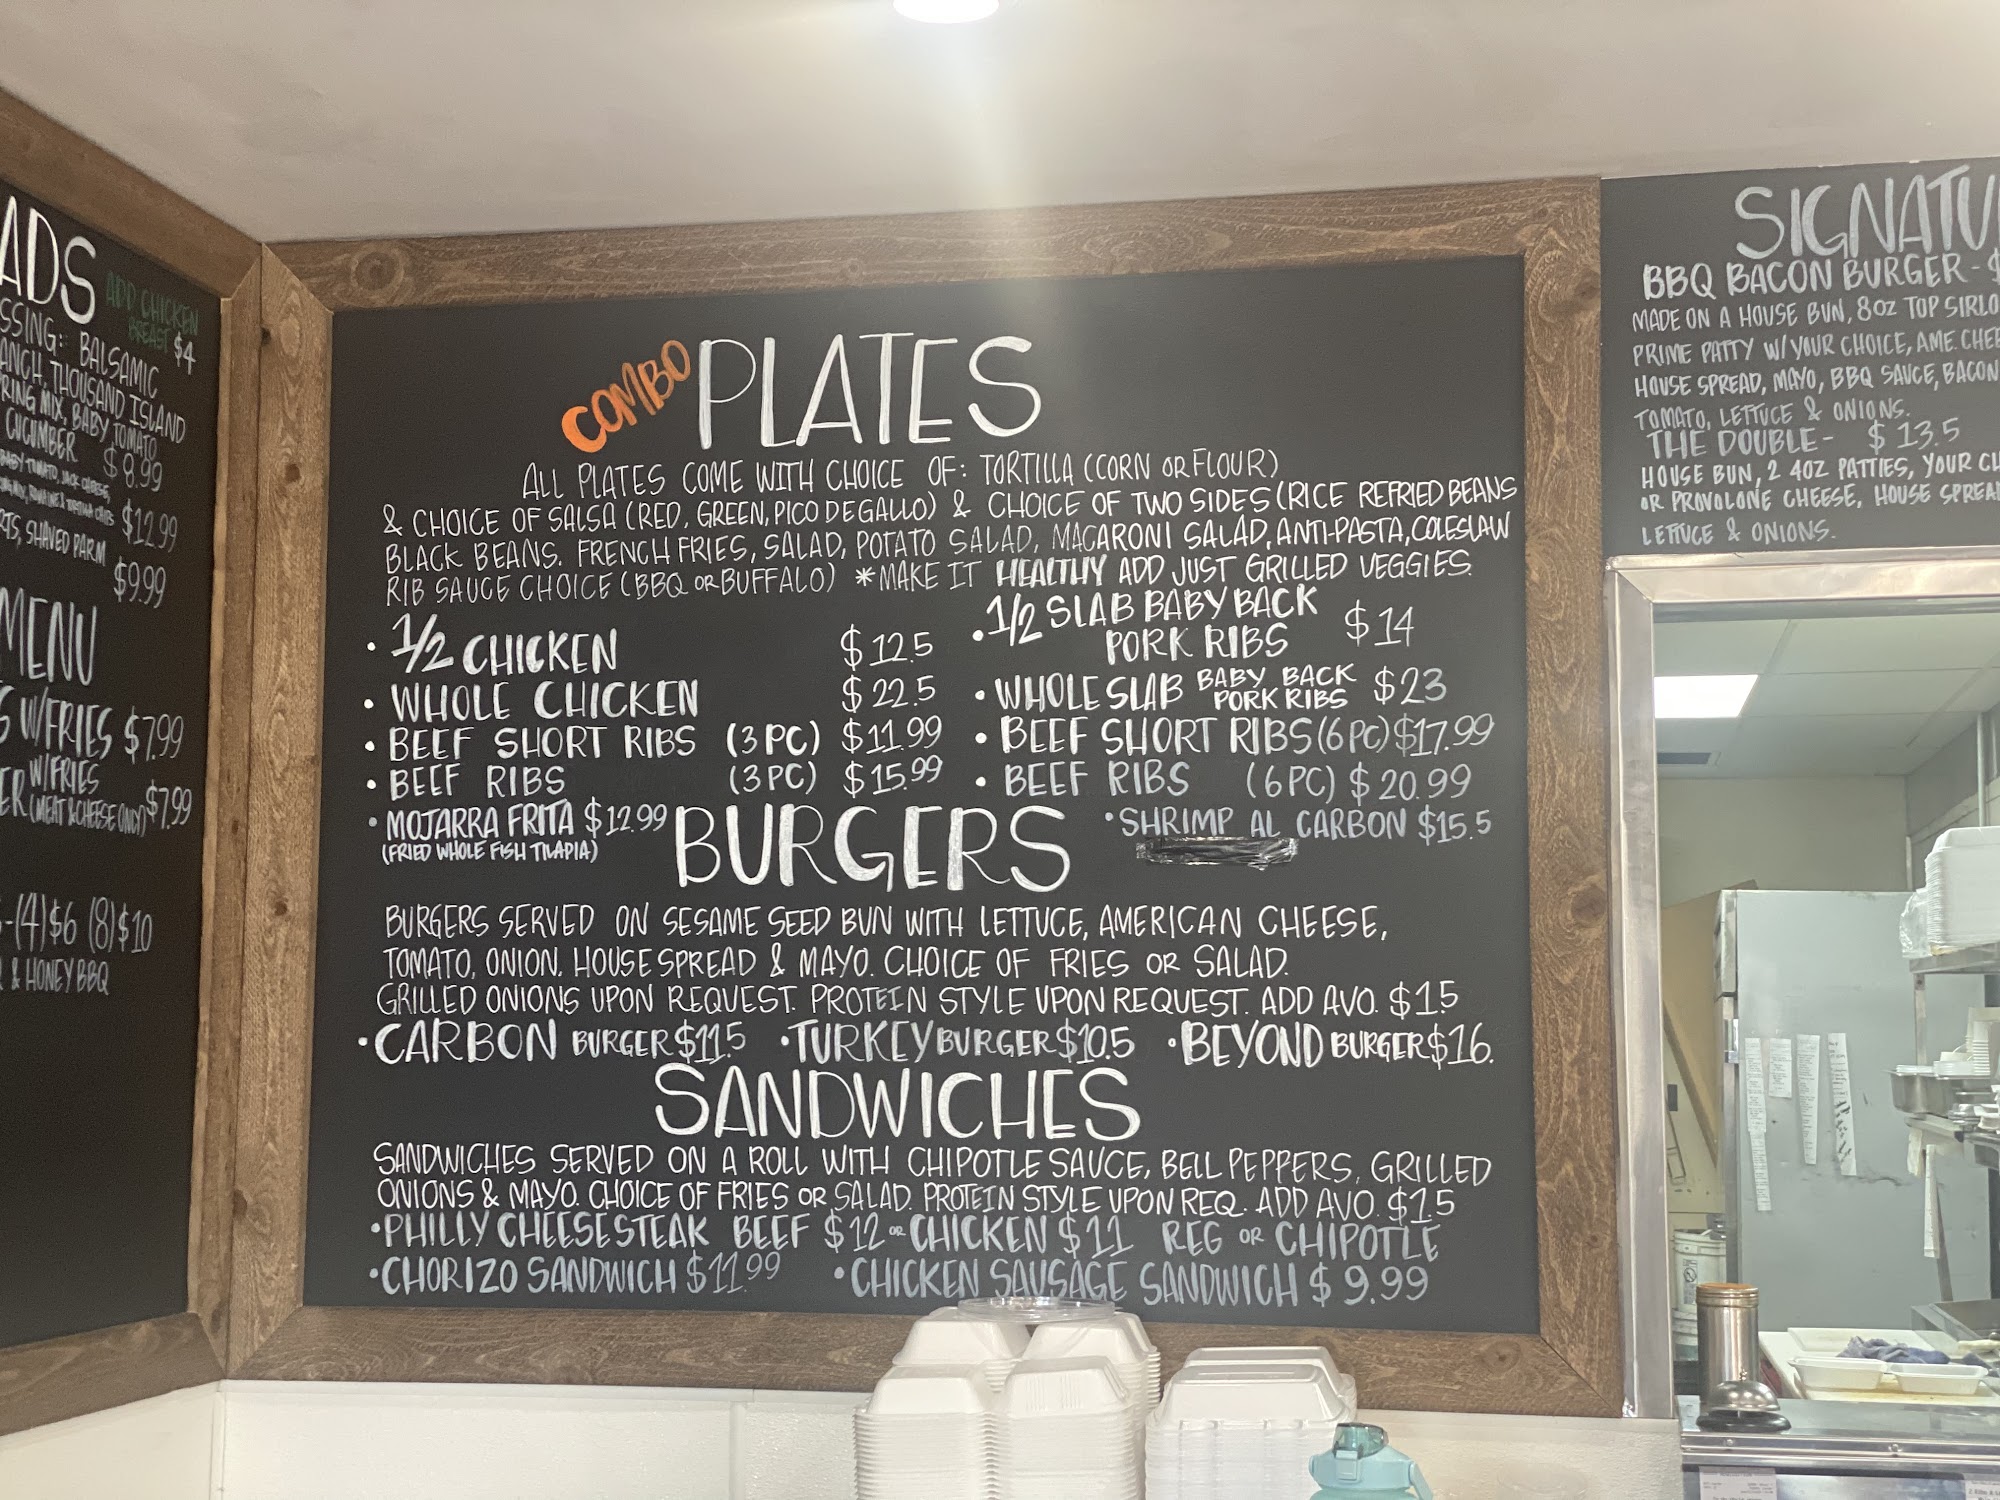 ADS
ADD CHICKEN
BREAST $4
BALSAMIC
THOUSAND ISLAND
MIX, BABY TOMATO
CUCUMBER $8.99
BABY TOMATO, JACK CHEESE,
$12.99
SHAVED PARM
$9.99
MENU
W/FRIES $7.99
W/FRIES
(MEAT & CHEESE ONLY) $7.99
-(4)$6 (8)$10
& HONEY BBQ
COMBO PLATES
ALL PLATES COME WITH CHOICE OF: TORTILLA (CORN OR FLOUR)
& CHOICE OF SALSA (RED, GREEN, PICO DE GALLO) & CHOICE OF TWO SIDES (RICE REFRIED BEANS
BLACK BEANS, FRENCH FRIES, SALAD, POTATO SALAD, MACARONI SALAD, ANTI-PASTA, COLESLAW
RIB SAUCE CHOICE (BBQ OR BUFFALO) *MAKE IT HEALTHY ADD JUST GRILLED VEGGIES.
• 1/2 CHICKEN $12.5
• WHOLE CHICKEN $22.5
• BEEF SHORT RIBS (3 PC) $11.99
• BEEF RIBS (3PC) $15.99
• MOJARRA FRITA $12.99
(FRIED WHOLE FISH TILAPIA)
• 1/2 SLAB BABY BACK
PORK RIBS $14
• WHOLE SLAB BABY BACK PORK RIBS $23
• BEEF SHORT RIBS (6 PC) $17.99
• BEEF RIBS (6PC) $20.99
• SHRIMP AL CARBON $15.5
BURGERS
BURGERS SERVED ON SESAME SEED BUN WITH LETTUCE, AMERICAN CHEESE,
TOMATO, ONION, HOUSE SPREAD & MAYO. CHOICE OF FRIES OR SALAD.
GRILLED ONIONS UPON REQUEST. PROTEIN STYLE UPON REQUEST. ADD AVO. $1.5
• CARBON BURGER $11.5 • TURKEY BURGER $10.5 • BEYOND BURGER $16.
SANDWICHES
SANDWICHES SERVED ON A ROLL WITH CHIPOTLE SAUCE, BELL PEPPERS, GRILLED
ONIONS & MAYO. CHOICE OF FRIES OR SALAD. PROTEIN STYLE UPON REQ. ADD AVO. $1.5
• PHILLY CHEESESTEAK BEEF $12 OR CHICKEN $11 REG OR CHIPOTLE
• CHORIZO SANDWICH $11.99 • CHICKEN SAUSAGE SANDWICH $9.99
SIGNATU
BBQ BACON BURGER - $
MADE ON A HOUSE BUN, 8OZ TOP SIRLO
PRIME PATTY W/ YOUR CHOICE, AME. CHEE
HOUSE SPREAD, MAYO, BBQ SAUCE, BACON
TOMATO, LETTUCE & ONIONS.
THE DOUBLE - $13.5
HOUSE BUN, 2 4OZ PATTIES, YOUR CH
OR PROVOLONE CHEESE, HOUSE SPREA
LETTUCE & ONIONS.